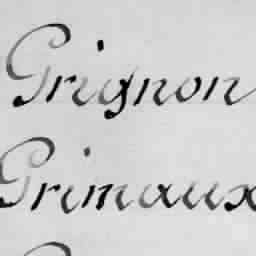 Grignon
Grimaux